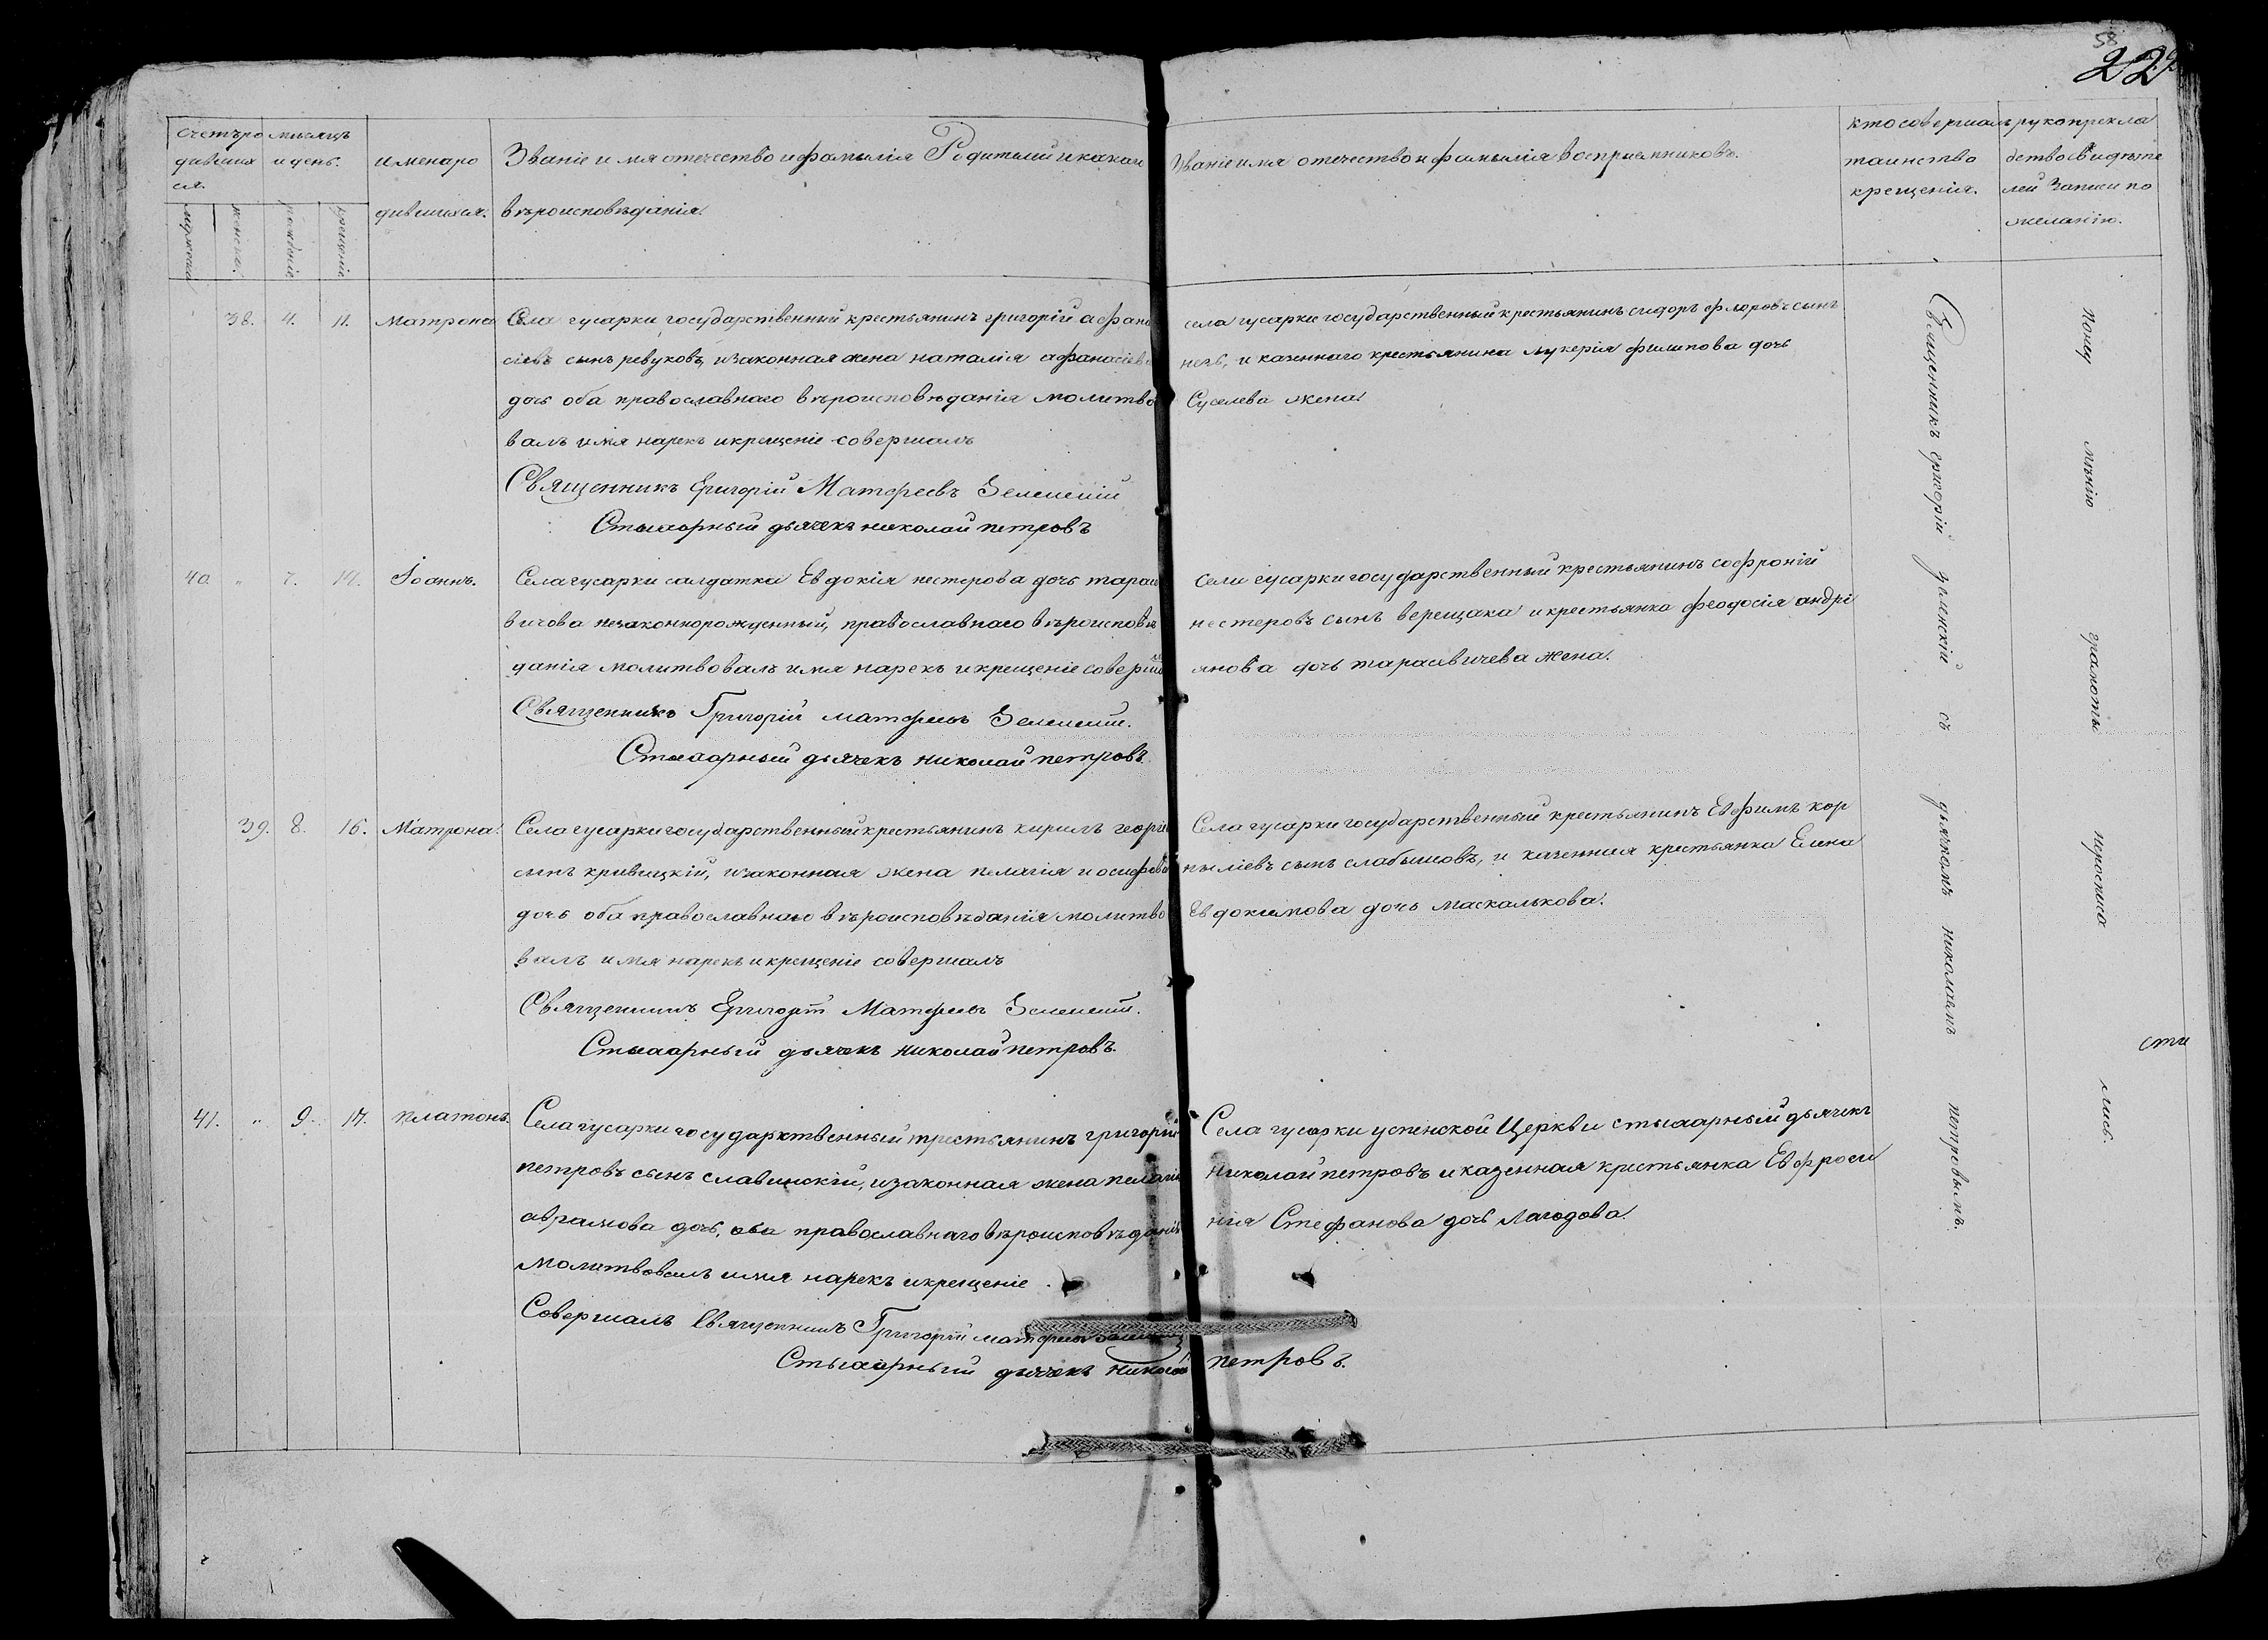 58
222
Счетъ ро
дивших
ся.
мужеска
женска.
месяцъ
и день.
рожденіе
крещеніе
имена ро
дившихся.
Званіе имя отечество и фамылія Родителей и какого
вѣроисповѣданія.
Званіе имя отечество и фамылія воспріемниковъ.
кто совершалъ
таинство
крещенія.
рукоприкла
детво свидѣте
лей записи по
желанію.
38. 4. 11. Матрона
Села гусарки государственный крестьянинъ григорій афана
сіевъ сынъ ревуковъ, и законная жена наталія афанасіева
дочь оба православнаго вѣроисповѣданія молитво
валъ имя нарекъ и крещеніе совершалъ
Священникъ Григорій Матфеевъ Зеленскій
Стыхарный дьячекъ николай петровъ
села гусарки государственный крестьянинъ сидоръ флоровъ сынъ
и казеннаго крестьянина лукерія филипова дочь
Суселева жена.
40. " 7. 14. Іоаннъ.
Села гусарки салдатка Евдокія нестерова дочь тарасе
вичова незаконнорожденный, православнаго вѣроисповѣ
данія молитвовалъ имя нарекъ и крещеніе совершалъ
Священникъ Григорій матфеевъ Зеленскій.
Стыхарный дьячекъ николай петровъ.
Села гусарки государственный крестьянинъ софроній
нестеровъ сынъ верещака и крестьянка феодосія андрі
янова дочь тарасевичева жена.
39. 8. 16. Матрона.
Села гусарки государственный крестьянинъ кирилъ георгіе
сынъ кривицкій, и законная жена пелагія иосифова
дочь оба православнаго вѣроисповѣданія молитво
валъ имя нарекъ и крещеніе совершалъ
Священникъ Григорій Матфеевъ Зеленскій.
Стыхарный дьячекъ николай петровъ.
Села гусарки государственный крестьянинъ Евфимъ кор
ныліевъ сынъ слабышовъ, и казенная крестьянка Елена
Евдокимова дочь маскалькова.
41. " 9. 17. платонъ.
Села гусарки государственный крестьянинъ григорій
петровъ сынъ славинскій, и законная жена пелагія
аврамова дочь, оба православнаго вѣроисповѣданія
молитвовалъ имя нарекъ и крещеніе
Совершалъ Священникъ Григорій матфеевъ Зеленскій
Стыхарный дьячекъ николай петровъ.
Села гусарки успенской Церкви стыхарный дьячекъ
николай петровъ и казенная крестьянка Евфроси
нія Стефанова дочь лагодова.
Священникъ григорій зеленскій съ дьячкомъ николаемъ петровымъ.
поне мѣнію грамоты неросписа лись.
сти